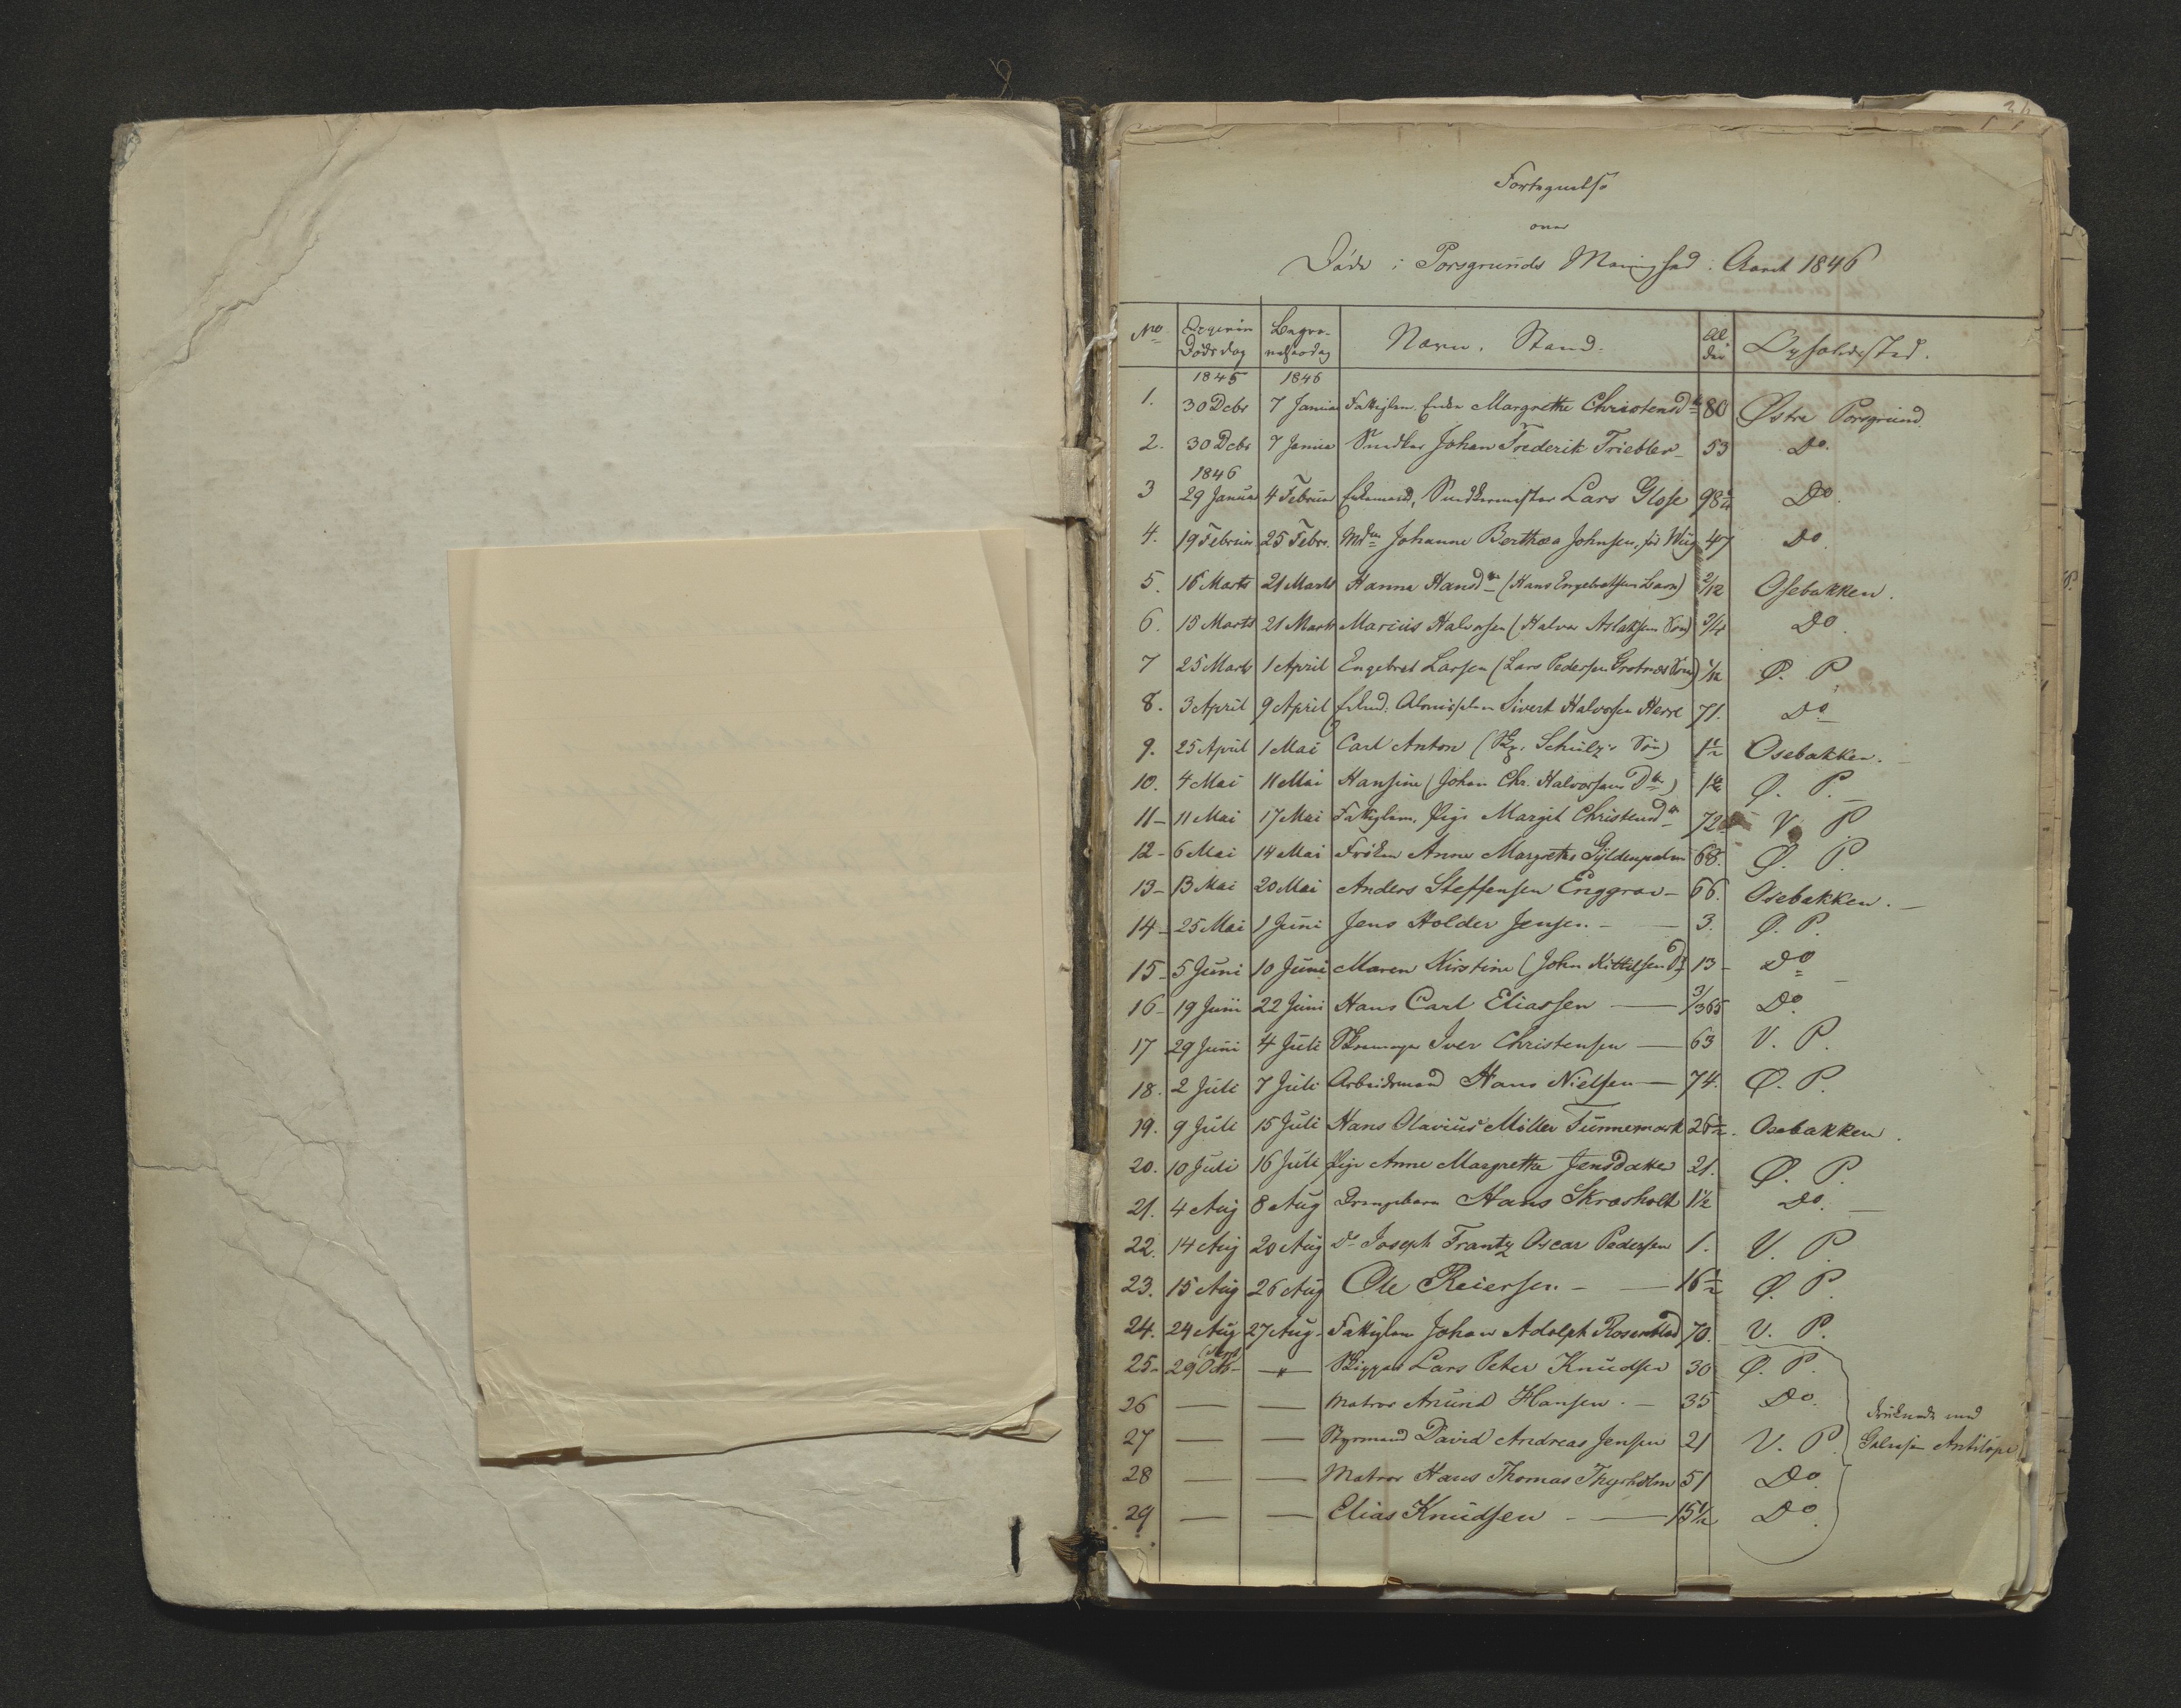 Fortegnelse
over
Døde i Porsgrunds Menighed i Aaret 1846
No Dødsdag Begravelsesdag Navn. Stand. Alder Opholdssted.
1845 1846
1. 30 Decbr 7 Januar Fattiglem Enke Margrethe Christensdtr 80 Østre Porsgrund
2. 30 Decbr 7 Januar Snedker Johan Frederik Triebler 53 Do.
1846
3 29 Januar 4 Februar Enkemand, Snedkermester Lars Glose 98 Do.
4. 19 Februar 25 Febr. Mdm Johanne Berthea Johnsen, fød Wiig 47 Do.
5. 16 Marts 21 Marts Hanna Hansdtr (Hans Engebretsens Barn) 2/12 Osebakken.
6. 15 Marts 21 Marts Marcius Halvorsen (Halvor Aslaksens Søn) 3/4 Do.
7 25 Marts 1 April Engebret Larsen (Lars Pedersen Grotnes Søn) 1/12 Ø. P.
8. 3 April 9 April Enkmd. Almisselem Sivert Halvorsen Herre 71. Do
9. 25 April 1 Mai Carl Anton (Schultz's Søn) 1 1/2 Osebakken.
10. 4 Mai 11 Mai Hansine (Johan Chr. Halvorsens Dtr) 1 1/2 Ø. P.
11 11 Mai 17 Mai Fattiglem, Pige Margit Christensdtr 72 V. P.
12 6 Mai 14 Mai Frøken Anne Margrethe Gyldenpalm 68. Ø. P.
13 13 Mai 20 Mai Anders Steffensen Enggrav 66. Osebakken.
14 25 Mai 1 Juni Jens Holder Jensen 3. Ø. P.
15 5 Juni 10 Juni Maren Kirstine (John Kittilsens D) 13 Do
16 19 Juni 22 Juni Hans Carl Eliassen 3/365 Do.
17 29 Juni 4 Juli Iver Christensen 63 V. P.
18. 2 Juli 7 Juli Arbeidsmand Hans Nielsen 74. Ø. P.
19. 9 Juli 15 Juli Hans Olavius Møller Tunnemark 26 1/2 Osebakken.
20. 10 Juli 16 Juli Pige Anne Margrethe Jensdatter 21. Ø. P.
21. 4 Aug 8 Aug Drengebarn Hans Skrosholt 1 1/2 Do.
22. 14 Aug 20 Aug Do Joseph Frantz Oscar Pedersen 1. V. P.
23. 15 Aug 26 Aug Ole Reiersen 16 1/2 Ø. P.
24. 24 Aug 27 Aug. Fattiglem Johan Adolph Rosenblad 70. V. P.
25 29 Oct Skipper Lars Peter Knudsen 30 Ø. P.
26 — — Matros Anund Hansen. 35 Do.
27 — — Styrmand David Andreas Jensen 21 V. P.
28 — — Matros Hans Thomas Thyrholm 51 Do.
29 — — Elias Knudsen 15 1/2 Do.
druknede med
Galeasen Antilope